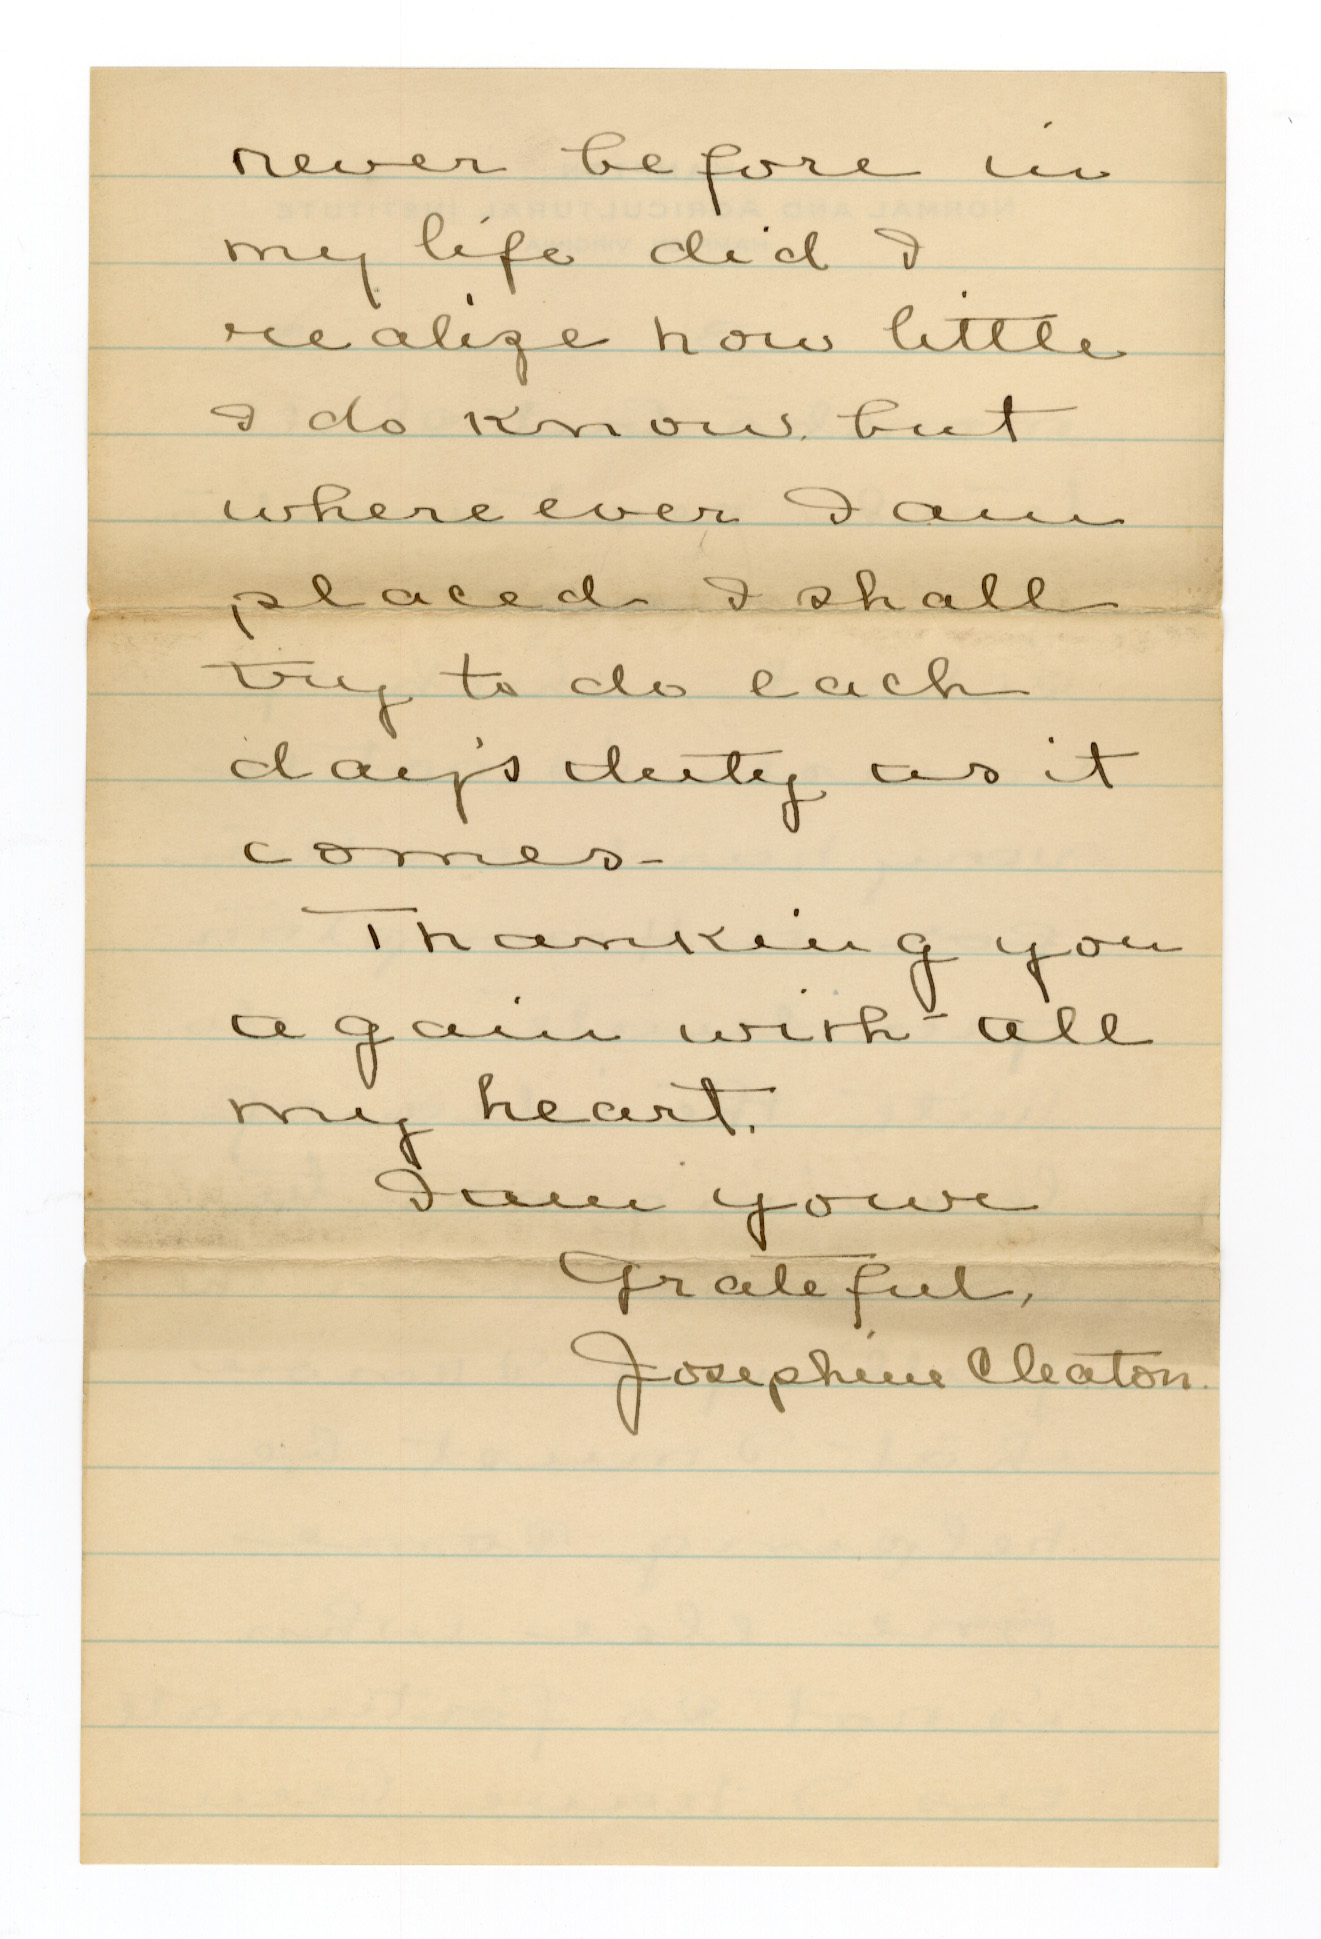 never before in
my life did I
realize how little
I do know. but
where ever I am
placed I shall
try to do each
day's duty as it
comes-
Thanking you
again with all
my heart.
I am your
Grateful,
Josephine Cleaton.